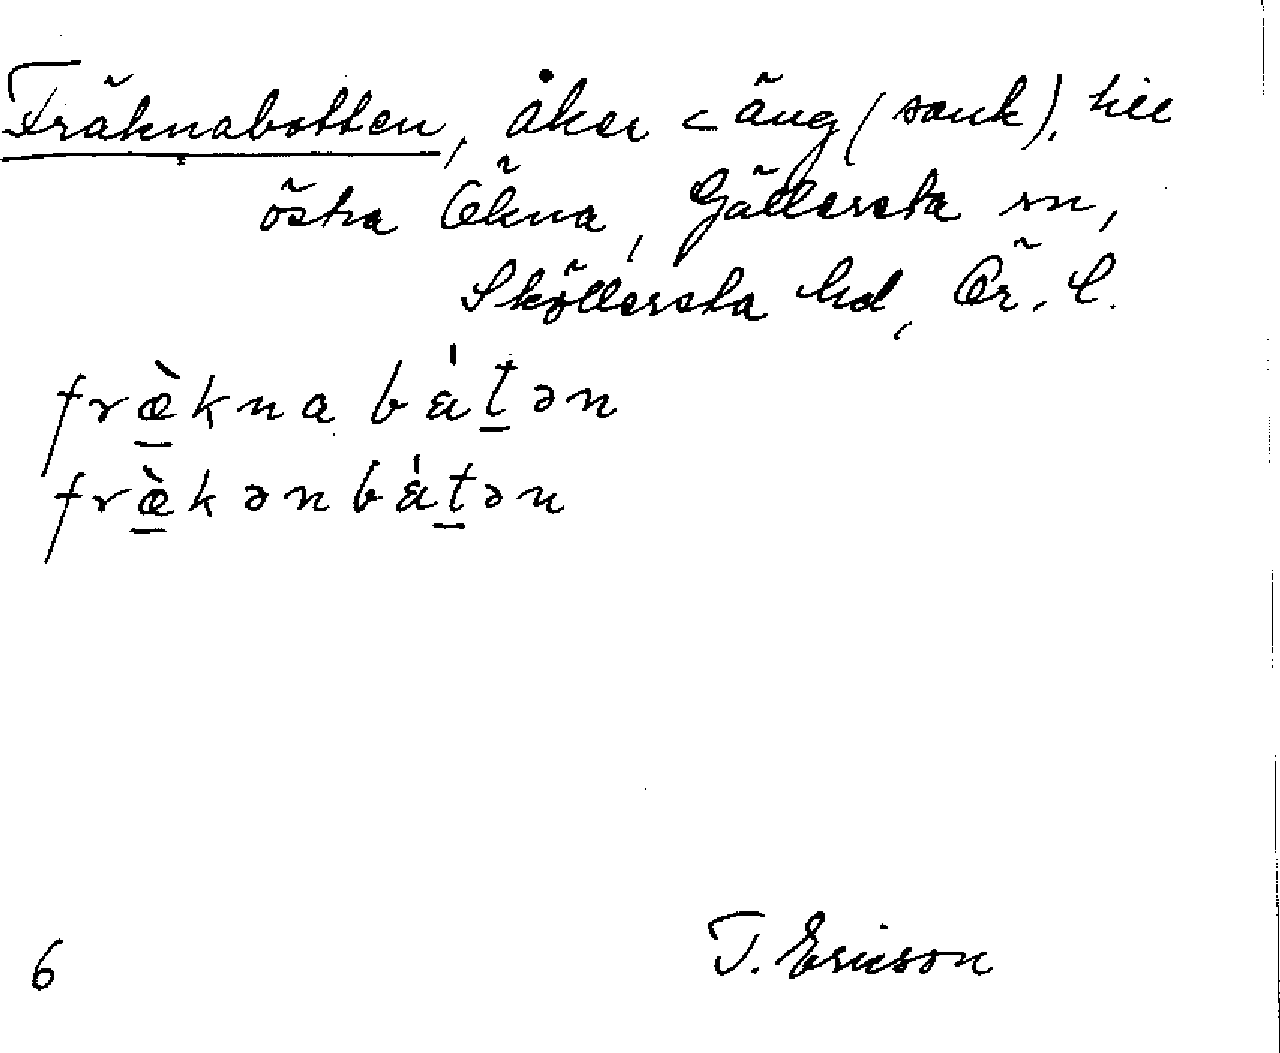 Fräknabotten, åker < äng (sank), till
östra Ökna, Gällersta sn,
Sköllersta hd, Ör. l.
fræ̀knabátən
fræ̀kənbátən
6 T. Ericson